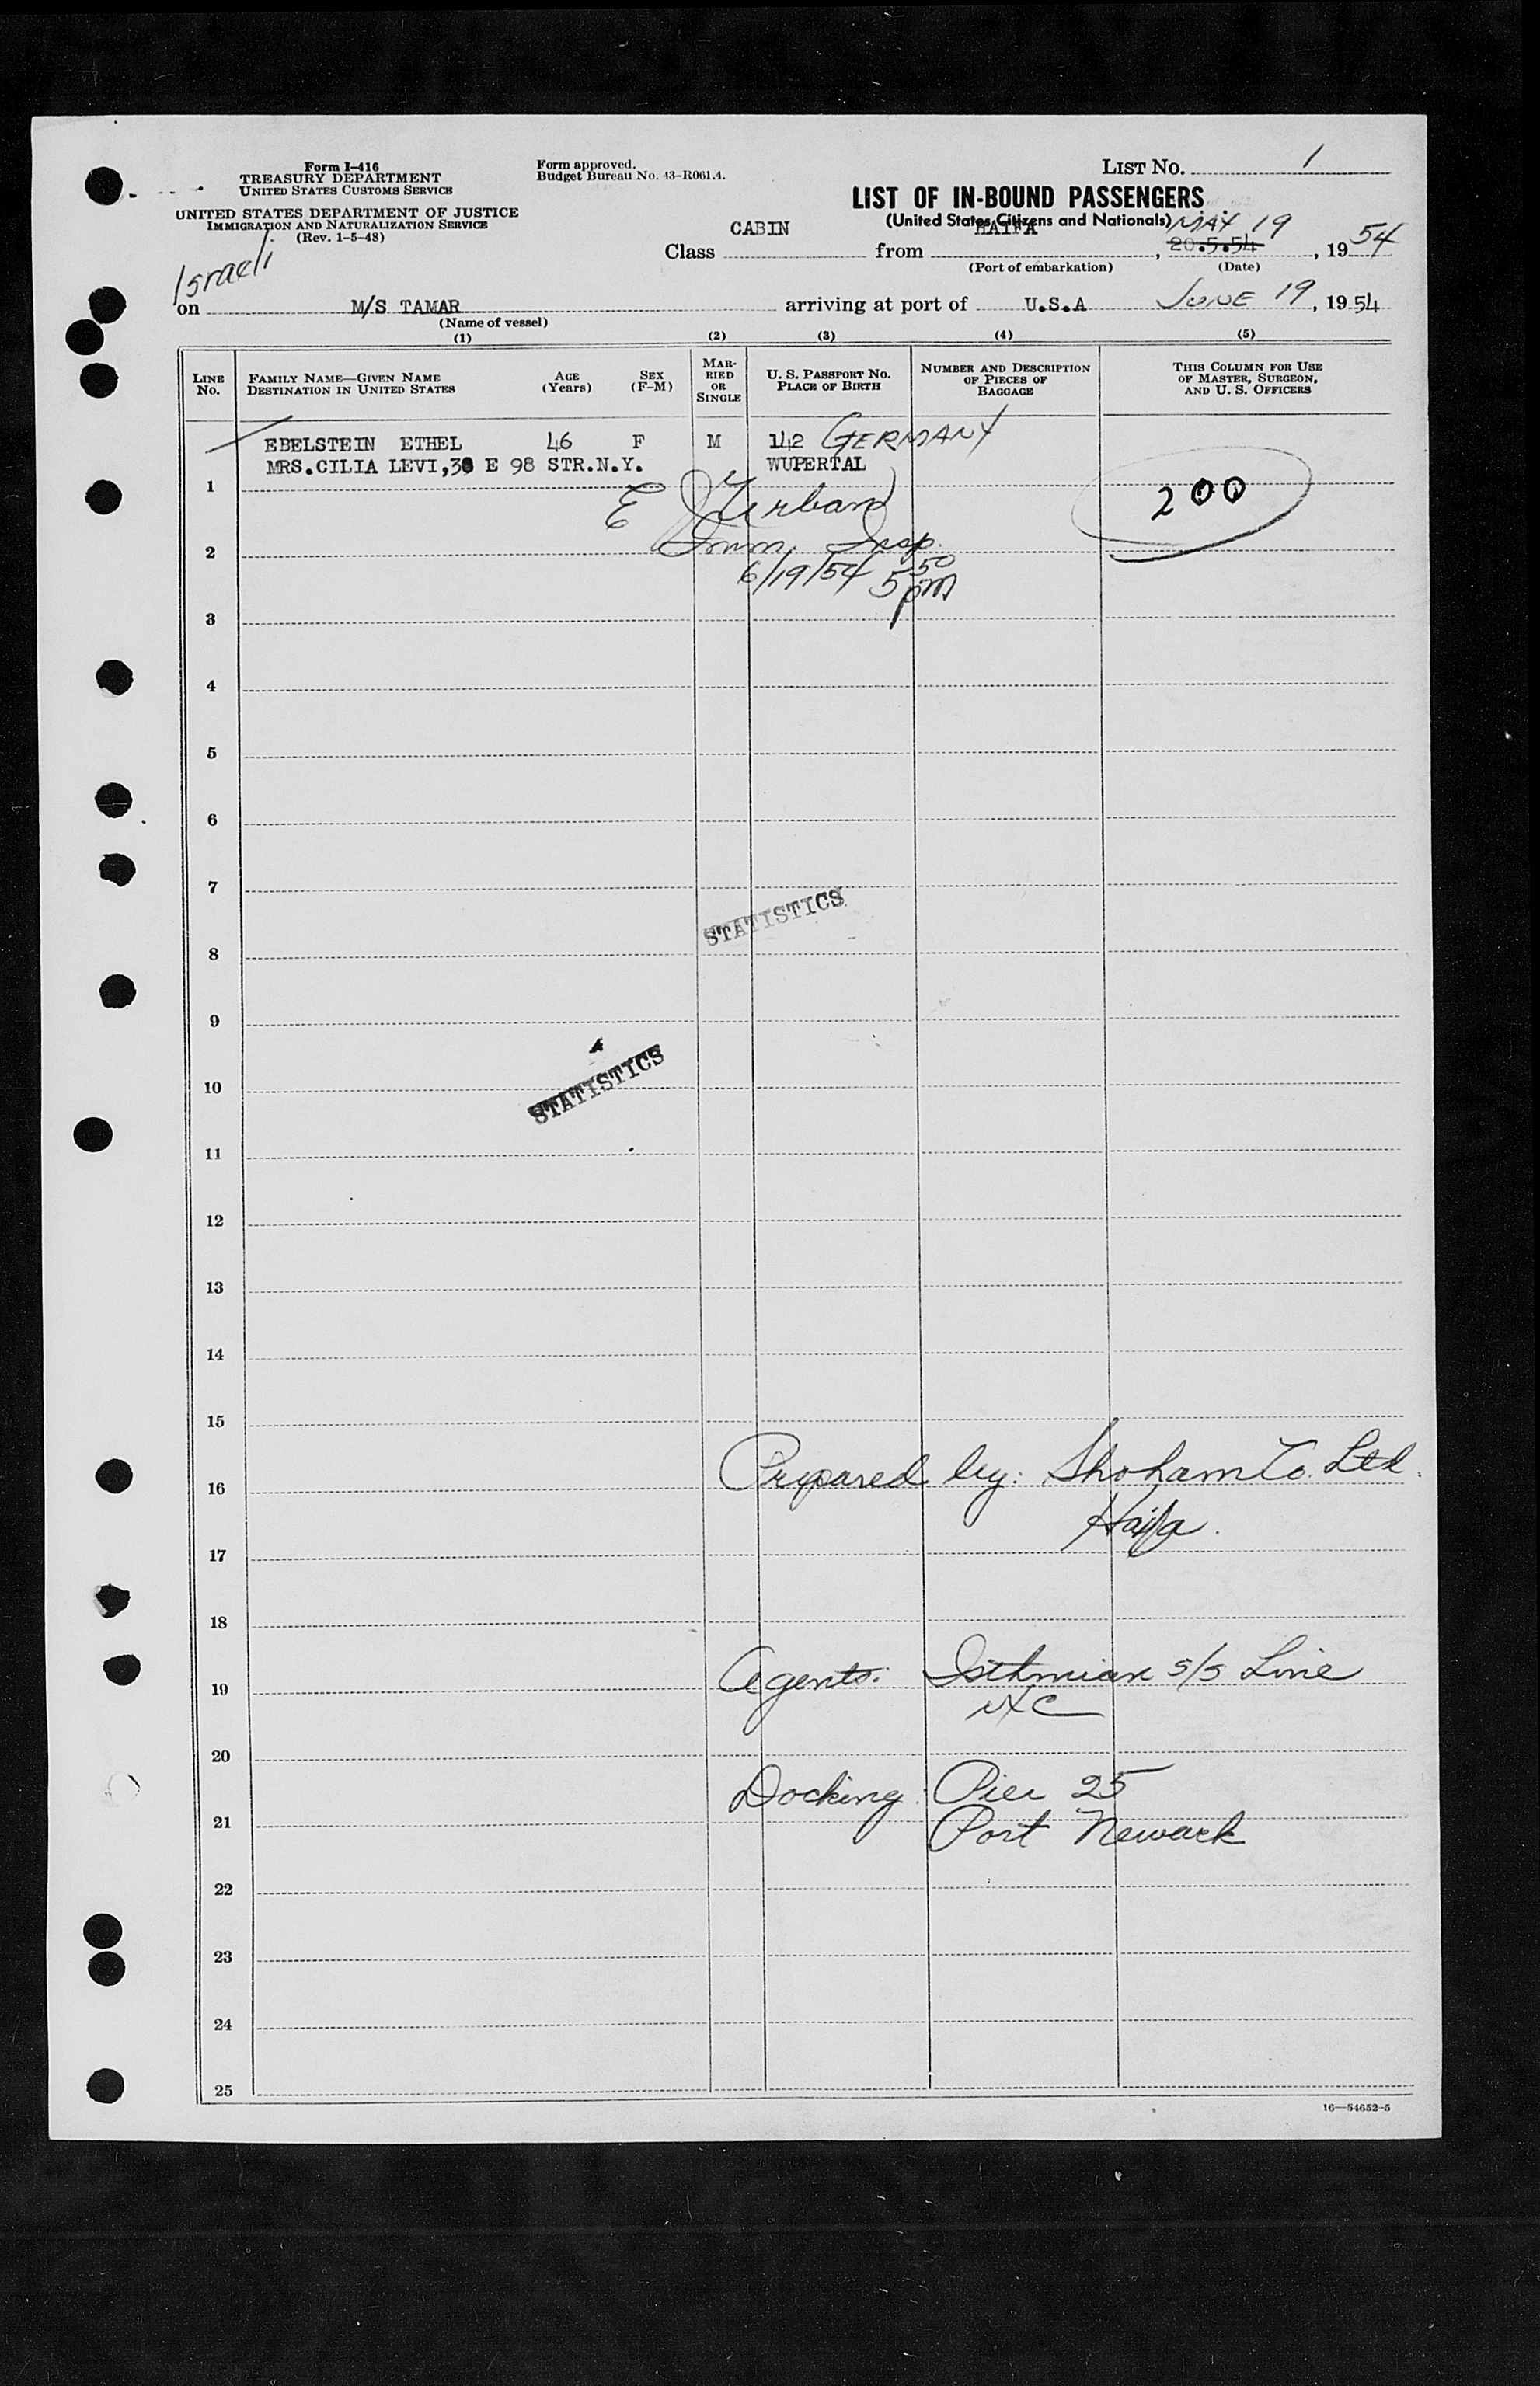 Form I-416
TREASURY DEPARTMENT
UNITED STATES CUSTOMS SERVICE
UNITED STATES DEPARTMENT OF JUSTICE
IMMIGRATION AND NATURALIZATION SERVICE
(Rev. 1-5-48)
Form approved.
Budget Bureau No. 43-R061.4.
LIST NO. 1
LIST OF IN-BOUND PASSENGERS
(United States Citizens and Nationals)
Class CABIN from HAIFA, 20.5.54 MAY 19, 1954
(Port of embarkation) (Date)
Israeli
on M/S TAMAR arriving at port of U.S.A JUNE 19, 1954
(Name of vessel)
(1) (2) (3) (4) (5)
LINE NO.
FAMILY NAME—GIVEN NAME
DESTINATION IN UNITED STATES
AGE (Years)
SEX (F-M)
MARRIED OR SINGLE
U. S. PASSPORT NO.
PLACE OF BIRTH
NUMBER AND DESCRIPTION OF PIECES OF BAGGAGE
THIS COLUMN FOR USE OF MASTER, SURGEON, AND U. S. OFFICERS
EBELSTEIN ETHEL 46 F M 142 GERMANY
MRS.CILIA LEVI, E 98 STR.N.Y. WUPERTAL
1
200
E
2
Imm. Insp.
6/19/54 5 50 pm
3
4
5
6
7
STATISTICS
8
9
STATISTICS
10
11
12
13
14
15
Prepared by: Shoham Co. Ltd.
16
Haifa.
17
18
Agents: Isthmian S/S Line
19
NYC
20
Docking: Pier 25
21
Port Newark
22
23
24
25
16—54652-5